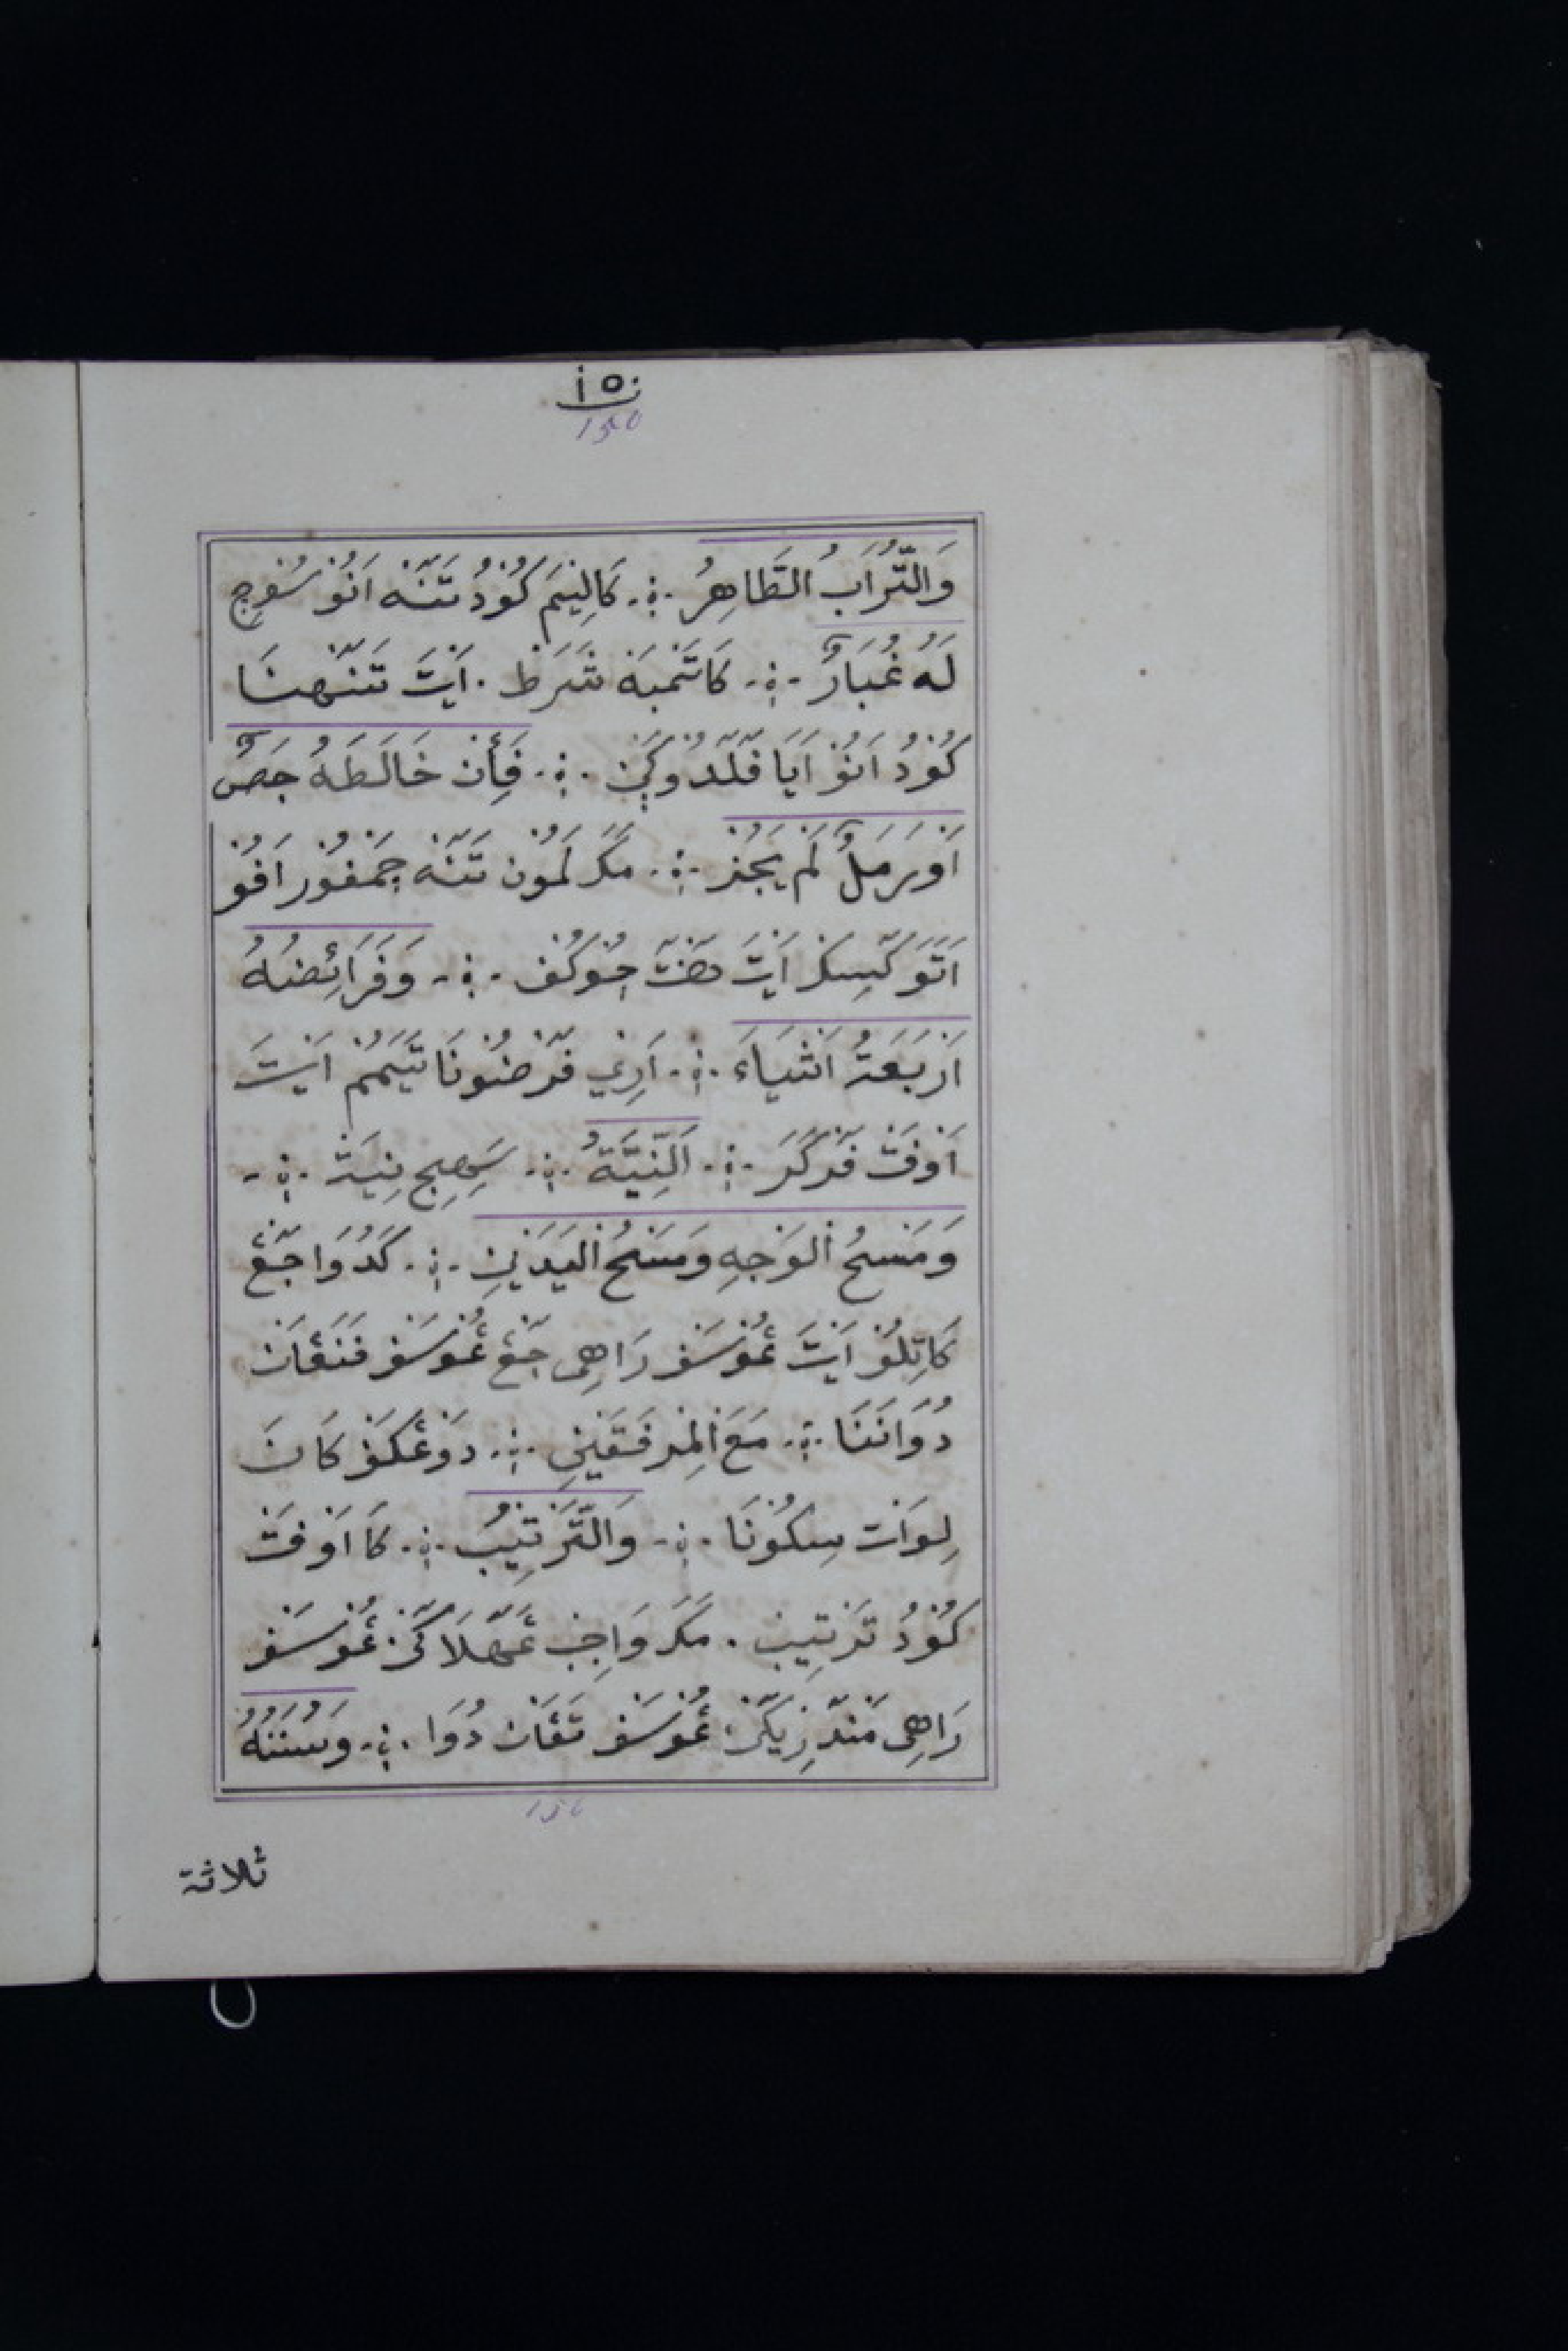 ١٥٠
150
وَالتُّرَابُ الطَّاهِرُ ؞ كَالِيْمَ كُوْدُ تَنَّهْ اَنُوْ سُوْچِ
لَهُ غُبَارٌ ؞ كَاتَمْبَهْ شَرَطْ . اَيْتَ تَنَّهنَا
كُوْدُ اَنُوْ اَيَا فَلَّدُوكَيْ ؞ فَأِنْ خَالَطَهُ جَصٌّ
اَوْرَمَلٌ لَمْ يَجُزْ ؞ مَكَ لَمُوْن تَنَّهْ چَمْفُوْر اَفُوْ
اَتَوَ كَسِكْ اَيْتَ جُوْكُفْ ؞ وَفَرَائِضُهُ
اَرْبَعَةُ اَشْيَاءَ ؞ اَرِيْ فَرْضُوْنَا تَيَمُمْ اَيْتَ
اَوْفَتْ فَرْكَرَ ؞ اَلنِّيَّةُ ؞ سَِصِجِ نِيَةْ ؞
وَمَسْحُ الْوَجْهِ وَمَسْحُ الْيَدَيْنِ ؞ كَدُوَا
كَاتِلُوْ اَيْتَ غُوْسَفْ رَاهِى غُوْسَفْ تَڠَانْ
دُوَانَنَا ؞ مَعَ الْمِرْفَقَيْنِ ؞ دَوْغَكَنْ كَانَ
لِوَاتْ سِكُوْنَا ؞ وَالتَّرْتِيْبُ ؞ كَا اَوْفَتْ
كُوْدُ تَرْتِيْبْ . مَكَ وَاجِبْ غَهَّلَاكَنْ غُوْسَفْ
رَاهِى مَنْدَرِيَكَنْ غُوْسَفْ تَڠَانْ دُوَا ؞ وَسُنَنُهُ
ثلاثة